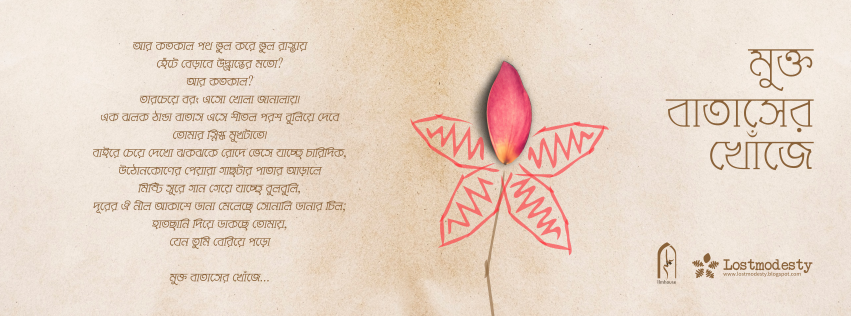 আর কতকাল পথ ভুল করে ভুল রাস্তায়
হেঁটে বেড়াবে উদ্ভ্রান্তের মতো?
আর কতকাল?
তারচেয়ে বরং এসো খোলা জানালায়।
এক ঝলক ঠান্ডা বাতাস এসে শীতল পরশ বুলিয়ে দেবে
তোমার স্নিগ্ধ মুখটাতে।
বাইরে চেয়ে দেখো ঝকঝকে রোদে ভেসে যাচ্ছে চারিদিক,
উঠোনকোণের পেয়ারা গাছটার পাতার আড়ালে
মিষ্টি সুরে গান গেয়ে যাচ্ছে বুলবুলি,
দূরের ঐ নীল আকাশে ডানা মেলেছে সোনালি ডানার চিল;
হাতছানি দিয়ে ডাকছে তোমায়,
যেন তুমি বেরিয়ে পড়ো
মুক্ত বাতাসের খোঁজে...
মুক্ত
বাতাসের
খোঁজে
Lostmodesty
www.lostmodesty.blogspot.com